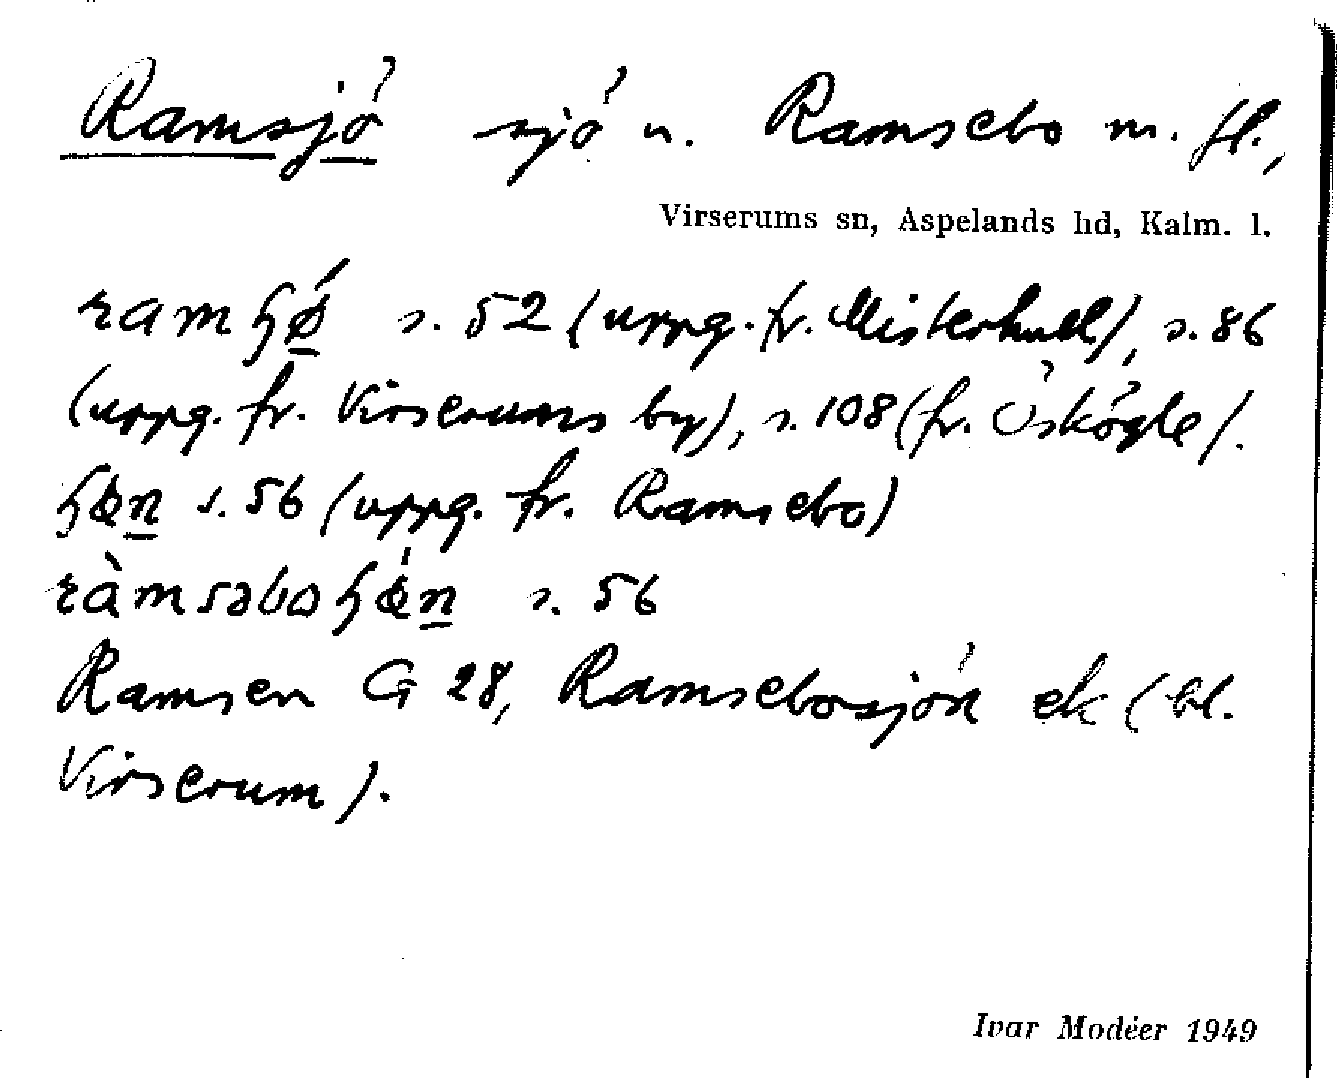 Ramsjö sjö u. Ramsebo m. fl.,
Virserums sn, Aspelands hd, Kalm. l.
ramɧǿ̱ s. 52 (uppg. fr. Misterhult), s. 86
(uppg. fr. Virserums by), s. 108 (fr. Öskögle).
ɧøṉ s. 56 (uppg. fr. Ramsebo)
ràmsəboɧǿṉ s. 56
Ramsen G 28, Ramsebosjön ek (bl.
Virserum).
Ivar Modéer 1949